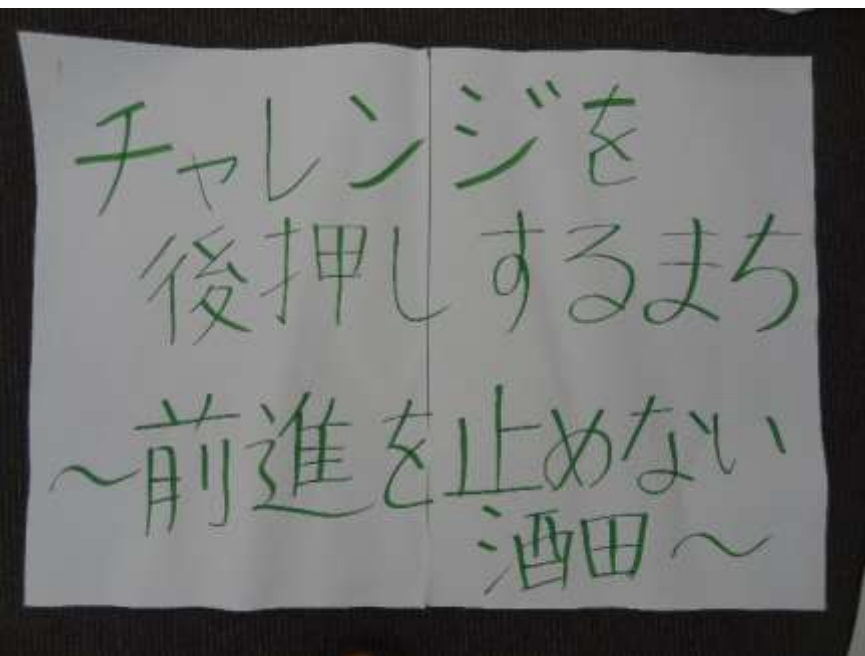 チャレンジを
後押しするまち
～前進を止めない
酒田～